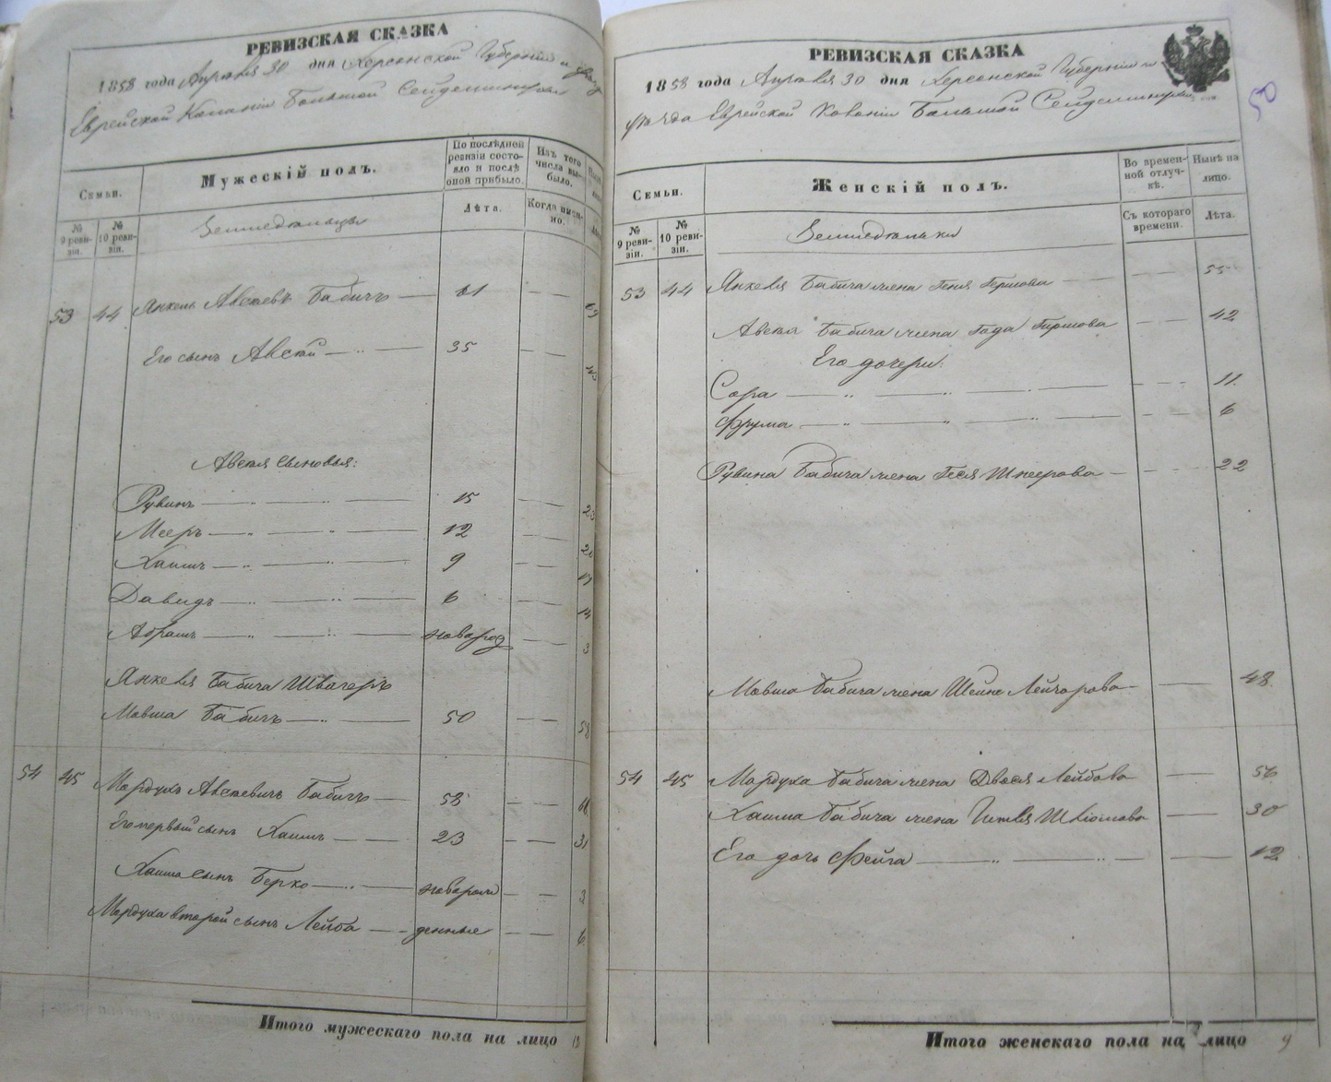 РЕВИЗСКАЯ СКАЗКА
1858 года Апреля 30 дня Херсонской Губернии и уезда
Еврейской Колонии Большой Сейдеминухи
Семьи.
Мужескій полъ.
По последней ревизіи состояло и после оной прибыло.
Изъ того числа выбыло.
№ 9 ревизіи.
№ 10 ревизіи.
Земледельцы
Лѣта.
Когда именно.
53 44 Янкель Авсеевъ Бабичъ 61
Его сынъ Авсей 35
Авсея сыновья:
Рувинъ 15
Мееръ 12 24
Хаимъ 9
Давидъ 6 14
Абрамъ новорож 3
Янкеля Бабича Швагеръ
Мовша Бабичъ 50 58
54 45 Мордухъ Авсеевичъ Бабичъ 58
Его первый сынъ Хаимъ 23 31
Хаима сынъ Берко новорож
Мордуха второй сынъ Лейба денные 6
Итого мужескаго пола на лицо
РЕВИЗСКАЯ СКАЗКА
50
1858 года Апреля 30 дня Херсонской Губерніи и
уезда Еврейской Колоніи Большой Сейдеминухи
Семьи.
Женскій полъ.
Во временной отлучкѣ.
Нынѣ на лицо.
№ 9 ревизіи.
№ 10 ревизіи.
Земледельки
Съ котораго времени.
Лѣта.
53 44 Янкеля Бабича жена Геня Гершова 55
Авсея Бабича жена Года Гиршова 42
Его дочери:
Сора 11
Фрума 6
Рувина Бабича жена Геся Шнеерова 22
Мовша Бабича жена Шейна Лейзорова 48
54 45 Мордуха Бабича жена Двося Лейбова 56
Хаима Бабича жена 30
Его дочь Фейга 12
Итого женскаго пола на лицо 9